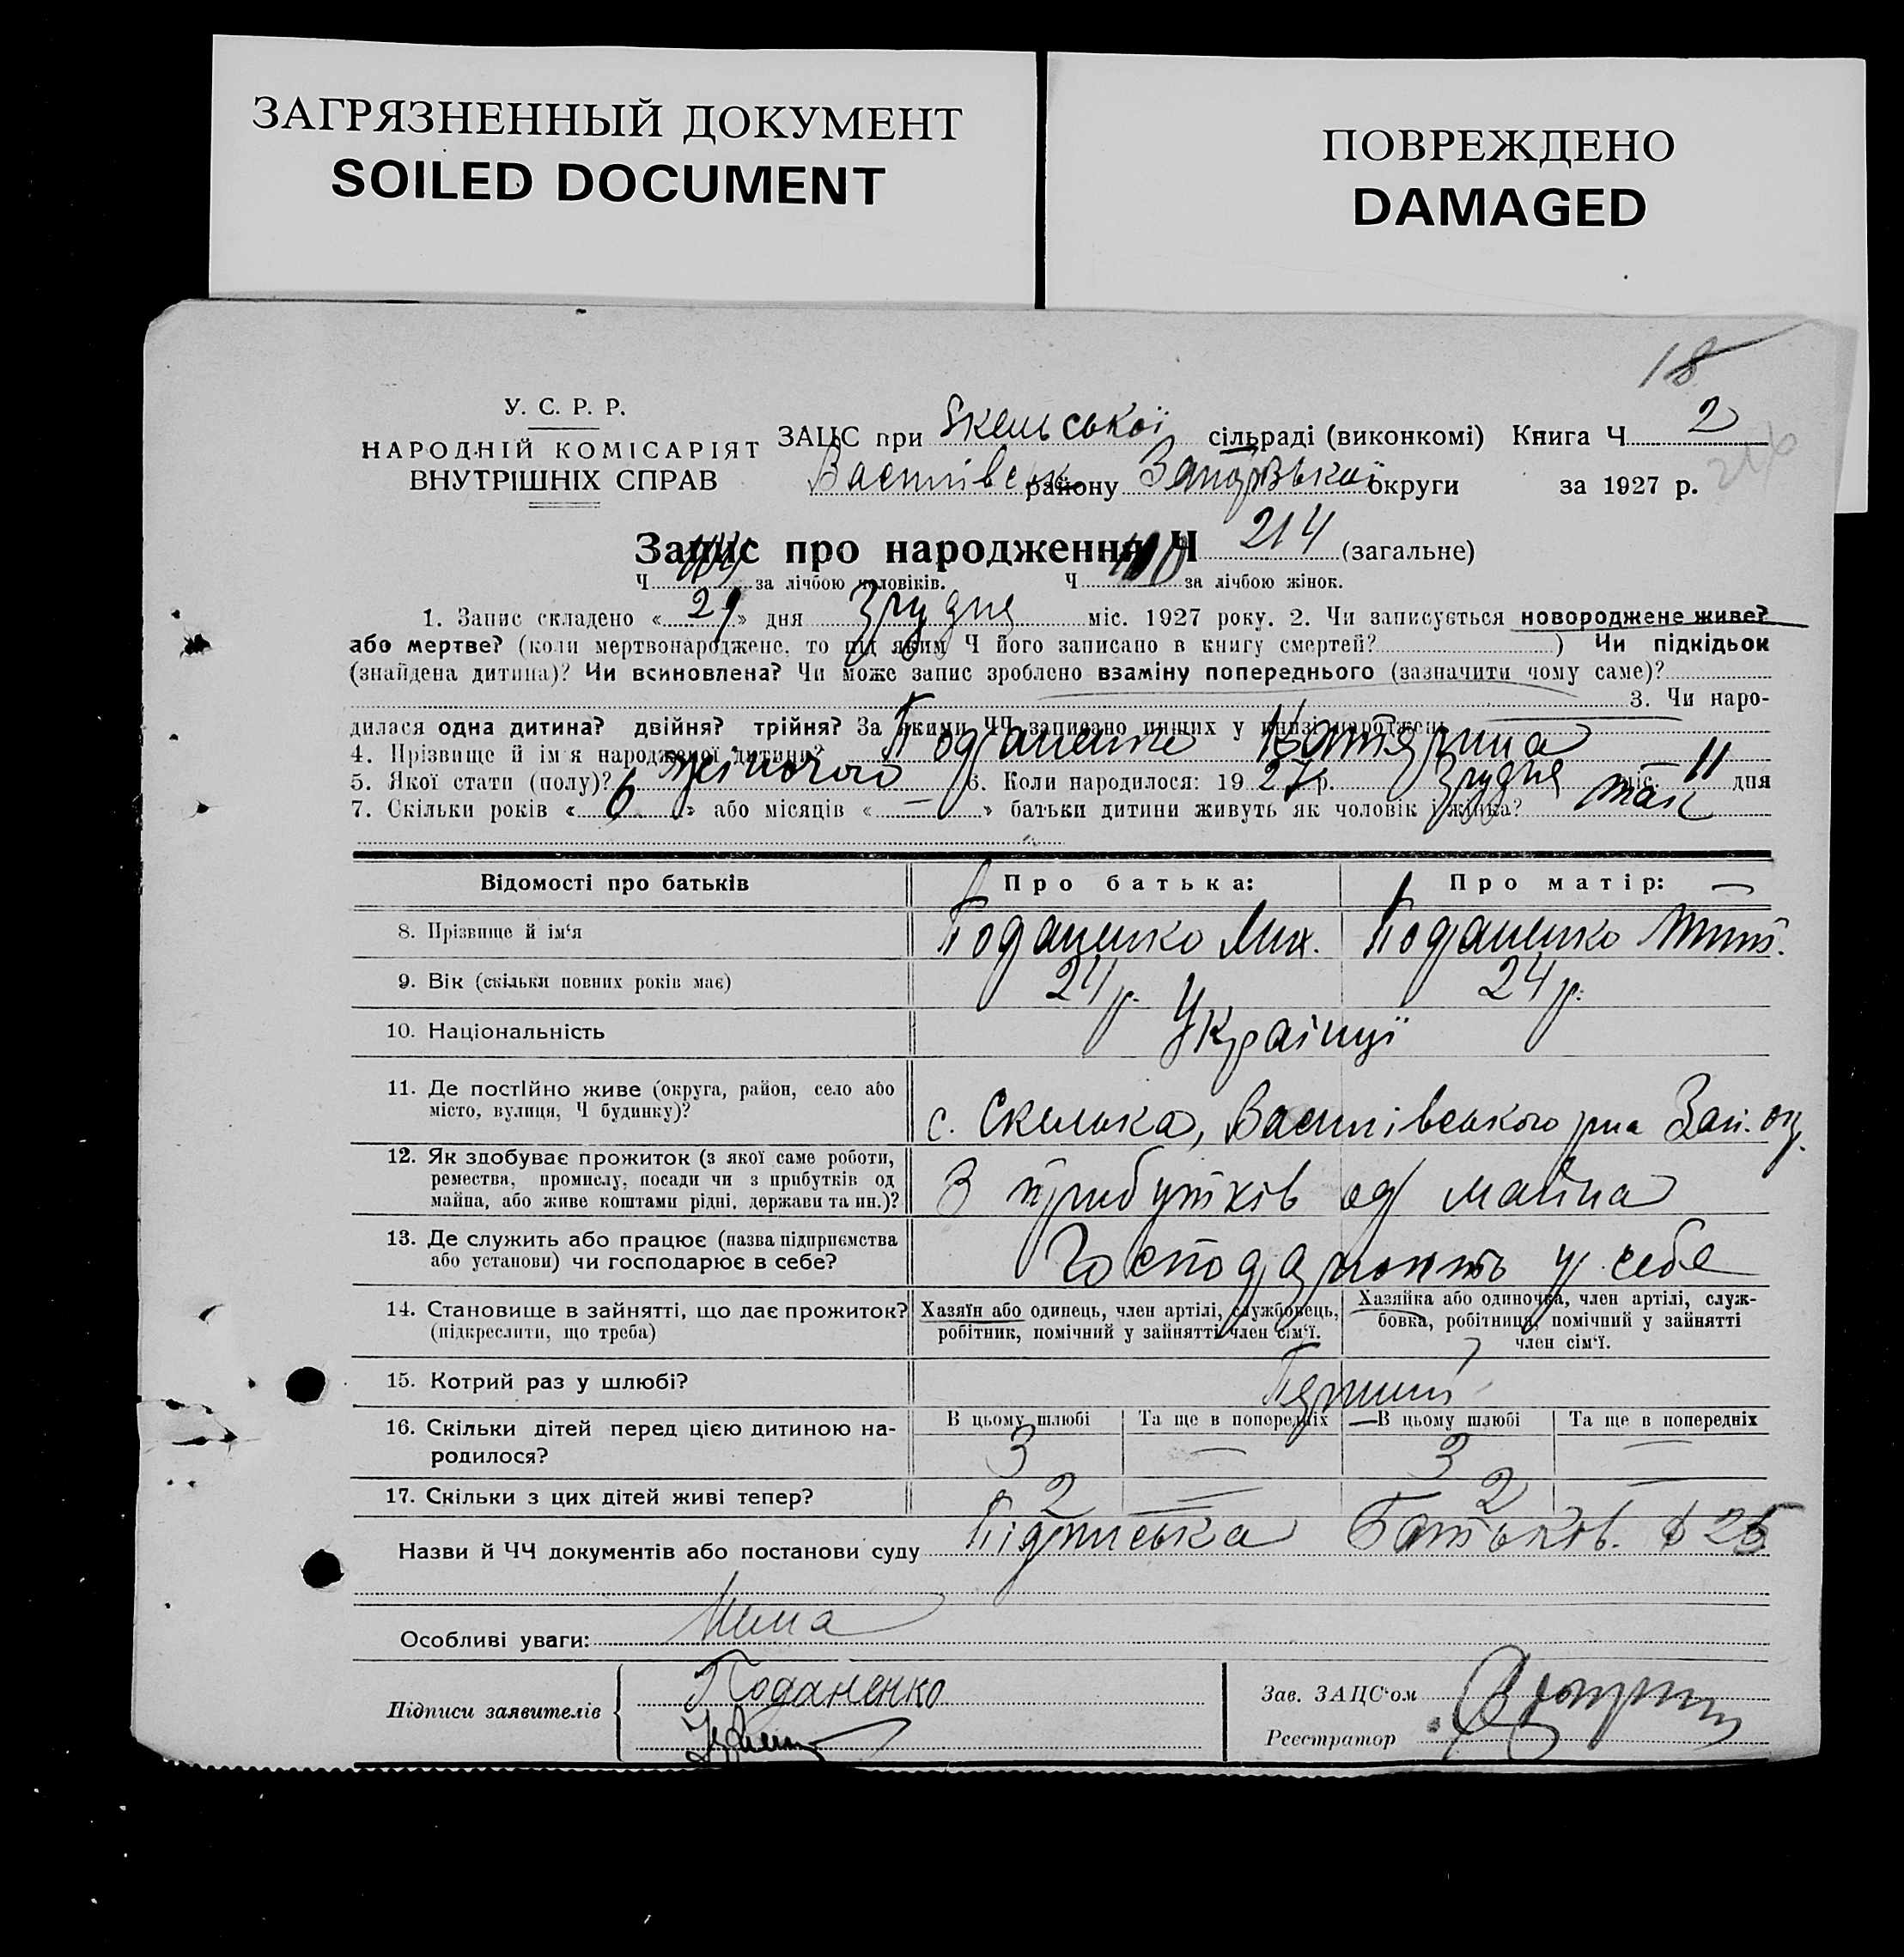 ЗАГРЯЗНЕННЫЙ ДОКУМЕНТ
SOILED DOCUMENT
ПОВРЕЖДЕНО
DAMAGED
18
У. С. Р. Р.
НАРОДНІЙ КОМІСАРІЯТ
ВНУТРІШНІХ СПРАВ
ЗАЦС при Скельської сільраді (виконкомі) Книга Ч 2
Василівськ району округи за 1927 р.
Запис про народження Ч 214 (загальне)
Ч за лічбою чоловіків. Ч за лічбою жінок.
1. Запис складено « 29 » дня Грудня міс. 1927 року. 2. Чи записується новороджене живе?
або мертве? (коли мертвонароджене, то під яким Ч його записано в книгу смертей? ) Чи підкідьок
(знайдена дитина)? Чи всиновлена? Чи може запис зроблено взаміну попереднього (зазначити чому саме)?
3. Чи наро-
дилася одна дитина? двійня? трійня? За якими ЧЧ записано инших у книзі народжень
4. Прізвище й ім'я народженої дитини? Поданенко Катерина
5. Якої стати (полу)? жіночого 6. Коли народилося: 19 27 р. Грудня міс. 11 дня
7. Скільки років « 6 » або місяців « — » батьки дитини живуть як чоловік і жінка? так
Відомості про батьків
Про батька:
Про матір:
8. Прізвище й ім‘я Поданенко Мих. Поданенко
9. Вік (скільки повних років має) 24 р. 24 р.
10. Національність Українці
11. Де постійно живе (округа, район, село або
місто, вулиця, Ч будинку)?
с. Скелька, Василівського рна Зап. ок.
12. Як здобуває прожиток (з якої саме роботи,
ремества, промислу, посади чи з прибутків од
майна, або живе коштами рідні, держави та ин.)?
З прибутків од майна
13. Де служить або працює (назва підприємства
або установи) чи господарює в себе?
Господарюють у себе
14. Становище в зайнятті, що дає прожиток?
(підкреслити, що треба)
Хазяїн або одинець, член артілі, службовець,
робітник, помічний у зайнятті член сім‘ї.
Хазяйка або одиночка, член артілі, служ-
бовка, робітниця, помічний у зайнятті
член сім‘ї.
15. Котрий раз у шлюбі? Перший
16. Скільки дітей перед цією дитиною на-
родилося?
В цьому шлюбі Та ще в попередніх В цьому шлюбі Та ще в попередніх
3 — 3 —
17. Скільки з цих дітей живі тепер? 2 — 2 —
Назви й ЧЧ документів або постанови суду Підписька Батьків.
Особливі уваги: Нема
Підписи заявителів
Поданенко
Зав. ЗАЦС‘ом
Реєстратор